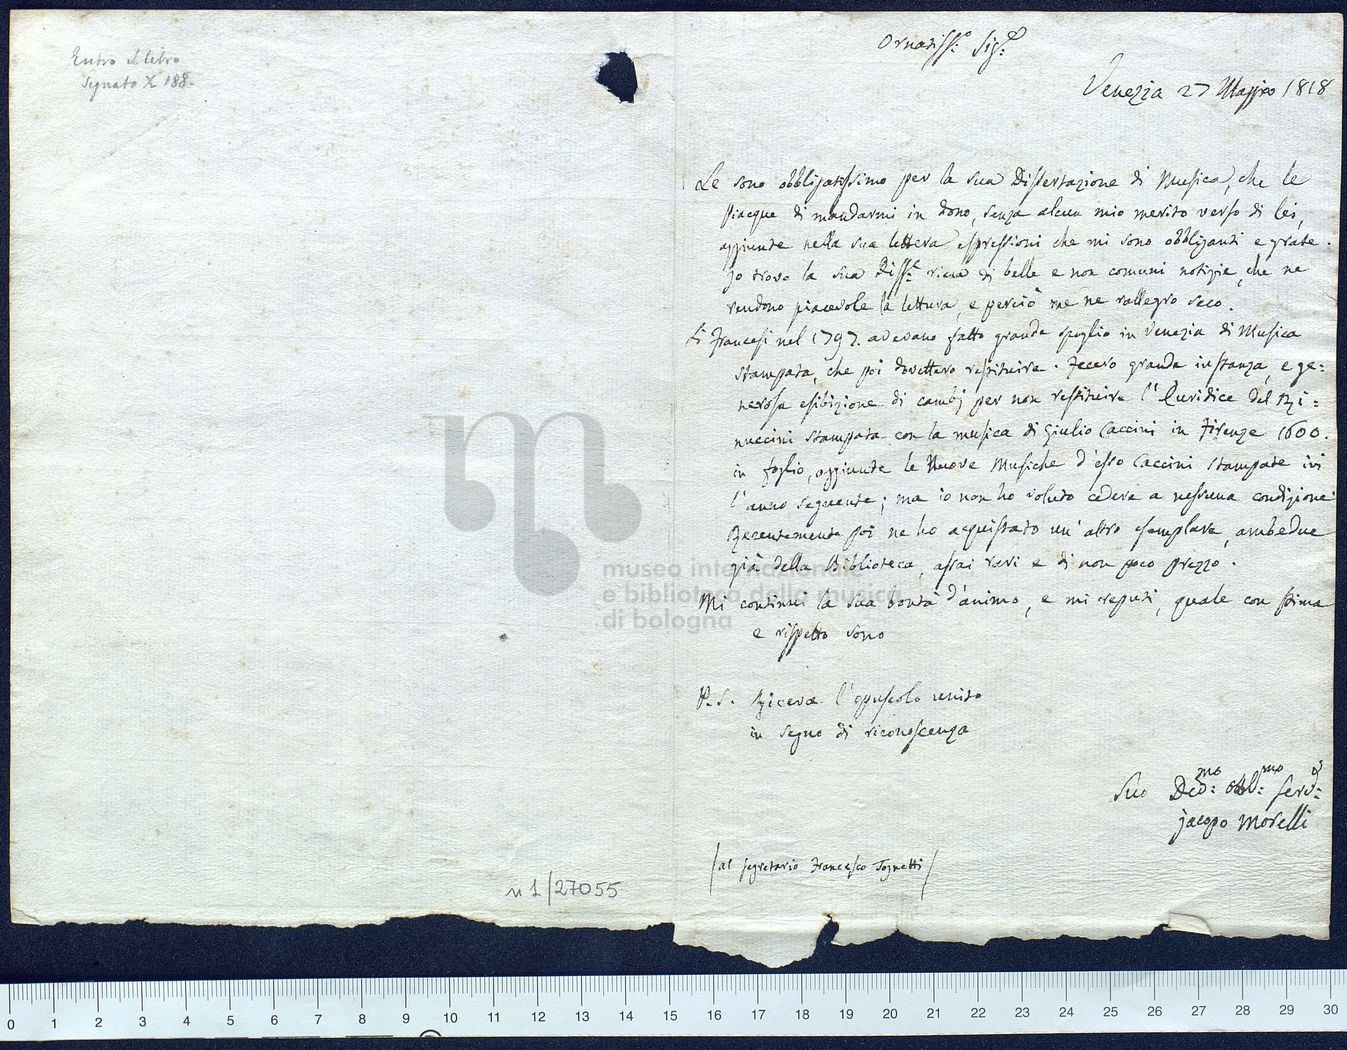 Entro il libro
segnato X 188.
Ornatiss.º Sig.e
Venezia 27 Maggio 1818
Le sono obbligatissimo per la sua Dissertazione di Musica, che le
piacque di mandarmi in dono, senza alcun mio merito verso di lei,
aggiunte nella sua lettera espressioni che mi sono obbliganti e grate.
Io trovo la sua Diss.e ricca di belle e non comuni notizie, che ne
rendono piacevole la lettura, e perciò me ne rallegro seco.
Li Francesi nel 1797. avevano fatto grande spoglio in Venezia di Musica
stampata, che poi dovettero restituire. Fecero grande instanza, e ge=
nerosa esibizione di cambj per non restituire l'Euridice del Ri=
nuccini stampata con la musica di Giulio Caccini in Firenze 1600.
in foglio, aggiunte le Nuove Musiche d'esso Caccini stampate ivi
l'anno seguente; ma io non ho voluto cedere a nessuna condizione.
Recentemente poi ne ho acquistato un'altro esemplare, ambedue
già della Biblioteca, assai rari e di non poco prezzo.
Mi continui la sua bontà d'animo, e mi reputi, quale con stima
e rispetto sono
P.S. Riceva l'opuscolo unito
in segno di riconoscenza
Suo Dev.mo obbl.mo serv.e
Jacopo Morelli
/al segretario Francesco Tognetti/
n 1/27055
museo internazionale
e biblioteca della musica
di bologna
0 1 2 3 4 5 6 7 8 9 10 11 12 13 14 15 16 17 18 19 20 21 22 23 24 25 26 27 28 29 30